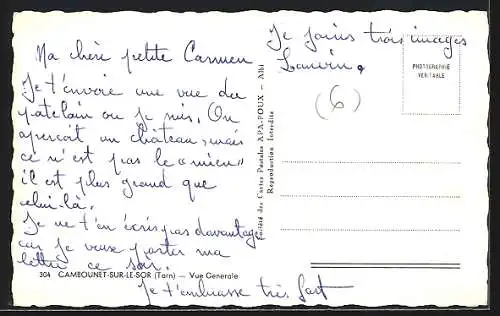 Ma chère petite Carmen
Je t'envoie une vue du
patelain ou je suis. On
aperçoit un château, mais
ce n'est pas le "mien"
il est plus grand que
celui-là.
Je ne t'en écris pas davantage
car je veux poster ma
lettre ce soir.
Je t'embrasse très fort
304 CAMBOUNET-SUR-LE-SOR (Tarn) — Vue Generale
Société des Cartes Postales APA-POUX - Albi
Reproduction Interdite
Je joins trois images
Lanvin.
(6)
PHOTOGRAPHIE
VERITABLE